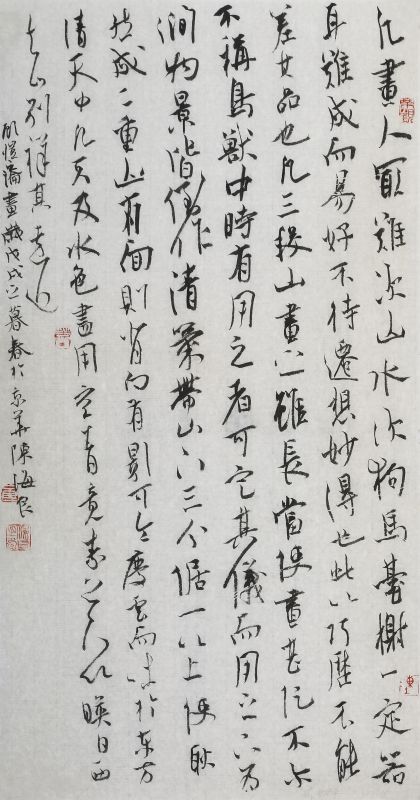 凡畫人冣難次山水次狗馬臺榭一定器
耳難成而易好不待遷想妙得也此以巧歷不能
差其品也凡三段山畫之雖長當使畫甚促不尔
不稱鳥獸中時有用之者可定其儀而用之下為
澗物景皆倒作清氣帶山下三分倨一以上使耿
然成二重山有面則背向有影可令慶雲而吐於東方
清天中凡天及水色盡用空青竟素上下以暎日西
去山別詳其遠近
愷論畫戊戌之暮春於京華陳海良